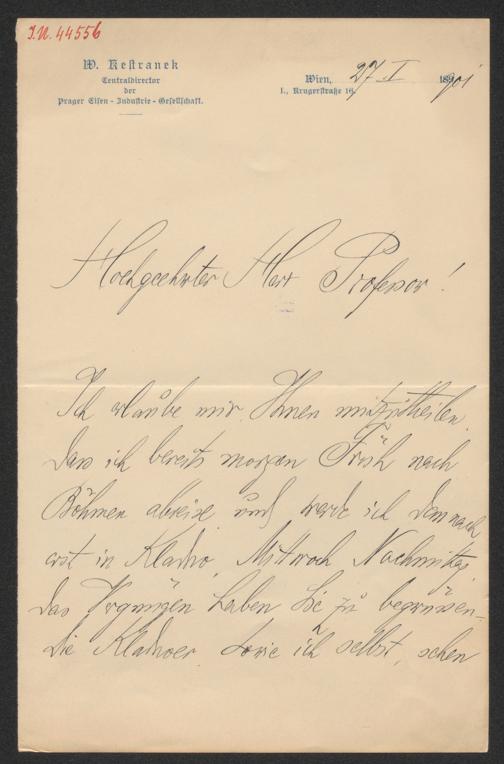 I.N. 44556
W. Kestranek
Centraldirector
der
Prager Eisen-Industrie-Gesellschaft.
Wien, 27 I 1891
I., Krugerstraße 16.
Hochgeehrter Herr Professor!
Ich erlaube mir Ihnen mitzutheilen
dass ich bereits morgen Früh nach
Böhmen abreise und werde ich demnach
erst in Kladno, Mittwoch Nachmittag
das Vergnügen haben Sie zu begrüssen.
Die Kladnoer sowie ich selbst, sehen